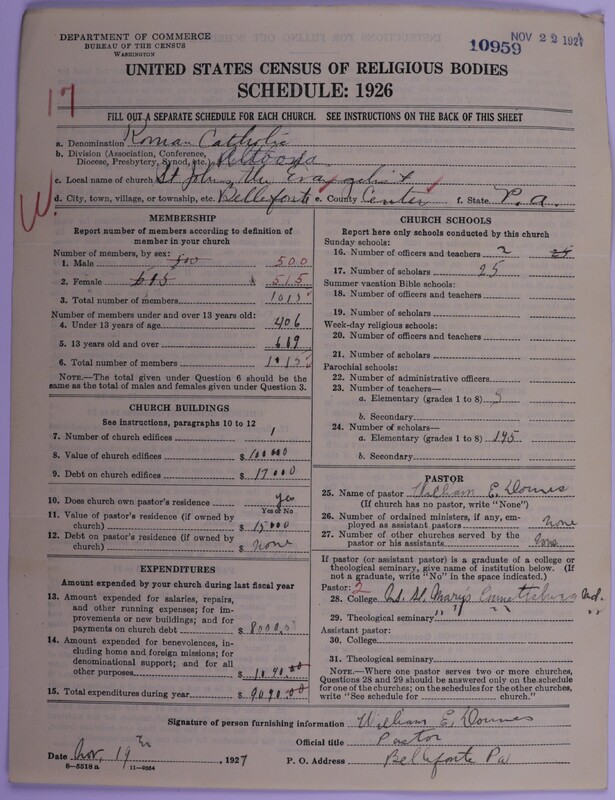 DEPARTMENT OF COMMERCE
BUREAU OF THE CENSUS
WASHINGTON
10959
NOV 22 1927
UNITED STATES CENSUS OF RELIGIOUS BODIES
SCHEDULE: 1926
17
FILL OUT A SEPARATE SCHEDULE FOR EACH CHURCH. SEE INSTRUCTIONS ON THE BACK OF THIS SHEET
a. Denomination Roman Catholic
b. Division (Association, Conference, Diocese, Presbytery, Synod, etc.) Altoona
c. Local name of church St John, the Evangelist
d. City, town, village, or township, etc. Bellefonte e. County Center f. State P.a.
MEMBERSHIP
Report number of members according to definition of member in your church
Number of members, by sex:
1. Male 500 500
2. Female 615 515
3. Total number of members 1015
Number of members under and over 13 years old:
4. Under 13 years of age 406
5. 13 years old and over
6. Total number of members
NOTE.—The total given under Question 6 should be the same as the total of males and females given under Question 3.
CHURCH BUILDINGS
See instructions, paragraphs 10 to 12
7. Number of church edifices 1
8. Value of church edifices $ 100000
9. Debt on church edifices $ 17000
10. Does church own pastor's residence yes
Yes or No
11. Value of pastor's residence (if owned by church) $ 15000
12. Debt on pastor's residence (if owned by church) $ none
EXPENDITURES
Amount expended by your church during last fiscal year
13. Amount expended for salaries, repairs, and other running expenses; for improvements or new buildings; and for payments on church debt $ 8000.00
14. Amount expended for benevolences, including home and foreign missions; for denominational support; and for all other purposes $ 1090.00
15. Total expenditures during year $ 9090.00
CHURCH SCHOOLS
Report here only schools conducted by this church
Sunday schools:
16. Number of officers and teachers 2
17. Number of scholars 25
Summer vacation Bible schools:
18. Number of officers and teachers
19. Number of scholars
Week-day religious schools:
20. Number of officers and teachers
21. Number of scholars
Parochial schools:
22. Number of administrative officers
23. Number of teachers—
a. Elementary (grades 1 to 8) 5
b. Secondary
24. Number of scholars—
a. Elementary (grades 1 to 8) 195
b. Secondary
PASTOR
25. Name of pastor William E. Downes
(If church has no pastor, write "None")
26. Number of ordained ministers, if any, employed as assistant pastors none
27. Number of other churches served by the pastor or his assistants none
If pastor (or assistant pastor) is a graduate of a college or theological seminary, give name of institution below. (If not a graduate, write "No" in the space indicated.)
Pastor: 2
28. College Mt. St. Mary's Emmettsburg Md.
29. Theological seminary " " "
Assistant pastor:
30. College
31. Theological seminary
NOTE.—Where one pastor serves two or more churches, Questions 28 and 29 should be answered only on the schedule for one of the churches; on the schedules for the other churches, write "See schedule for church."
Signature of person furnishing information William E. Downes
Official title Pastor
Date Nov. 19th, 1927 P. O. Address Bellefonte Pa
6—5518a 11—9264